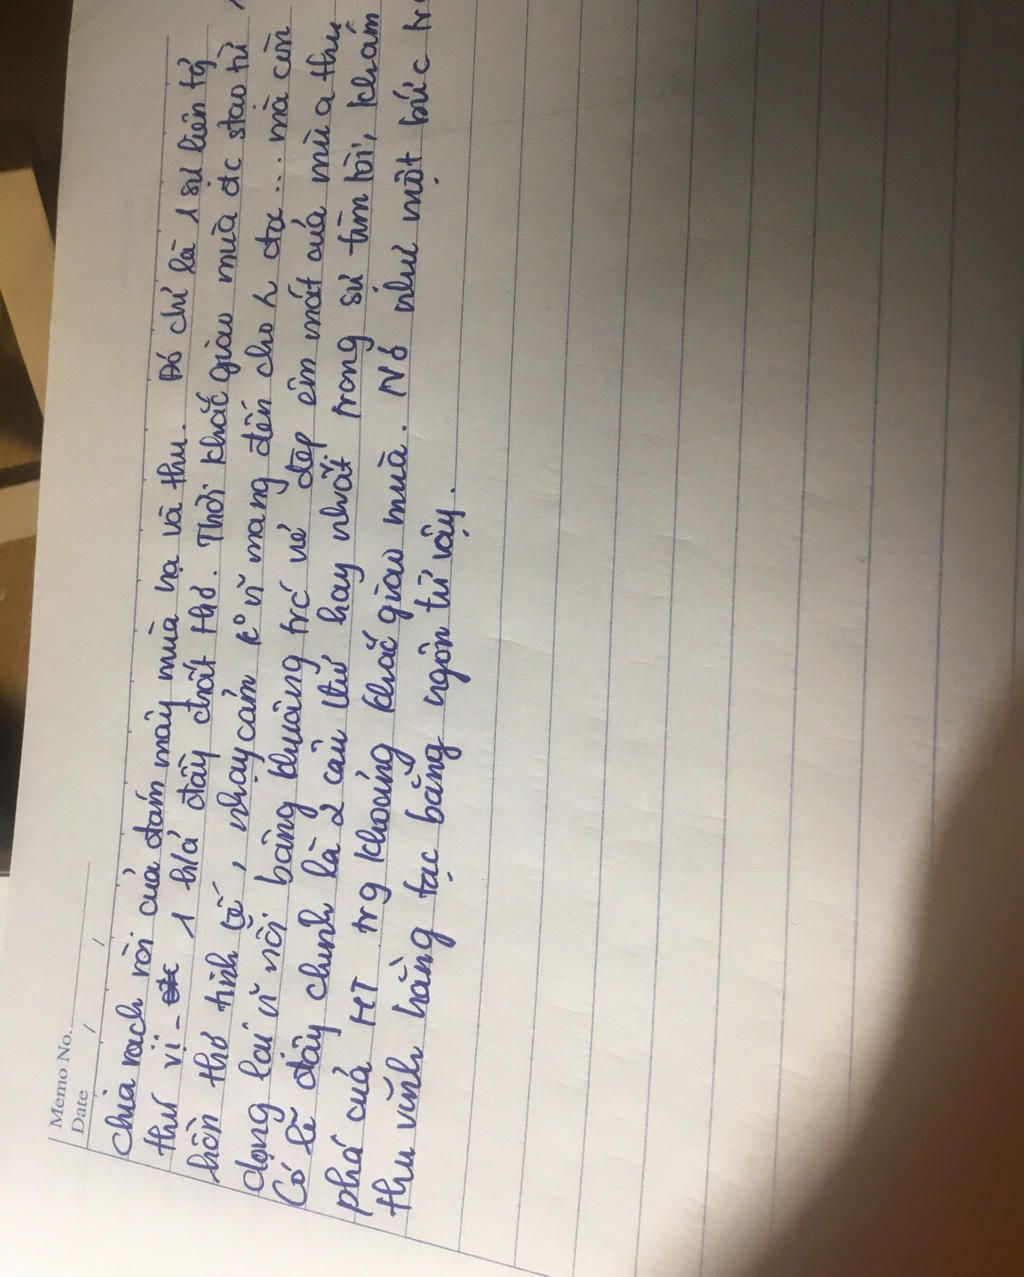 Memo No.
Date / /
chia rạch ròi của đám mây mùa hạ và thu. Đó chỉ là 1 sự liên tg
thú vị - 1 h/a đầy chất thơ. Thời khắc giao mùa đc stao từ
hồn thơ tinh tế, nhạy cảm k° vì mang đến cho h đa... mà còn
đọng lại vì nỗi bâng khuâng trc vẻ đẹp êm mát của mùa thu
Có lẽ đây chính là 2 câu thơ hay nhất trong sự tìm tòi, khám
phá của HT trg khoảng khắc giao mùa. Nó như một bức
thu vĩnh hằng tạc bằng ngôn từ vậy.